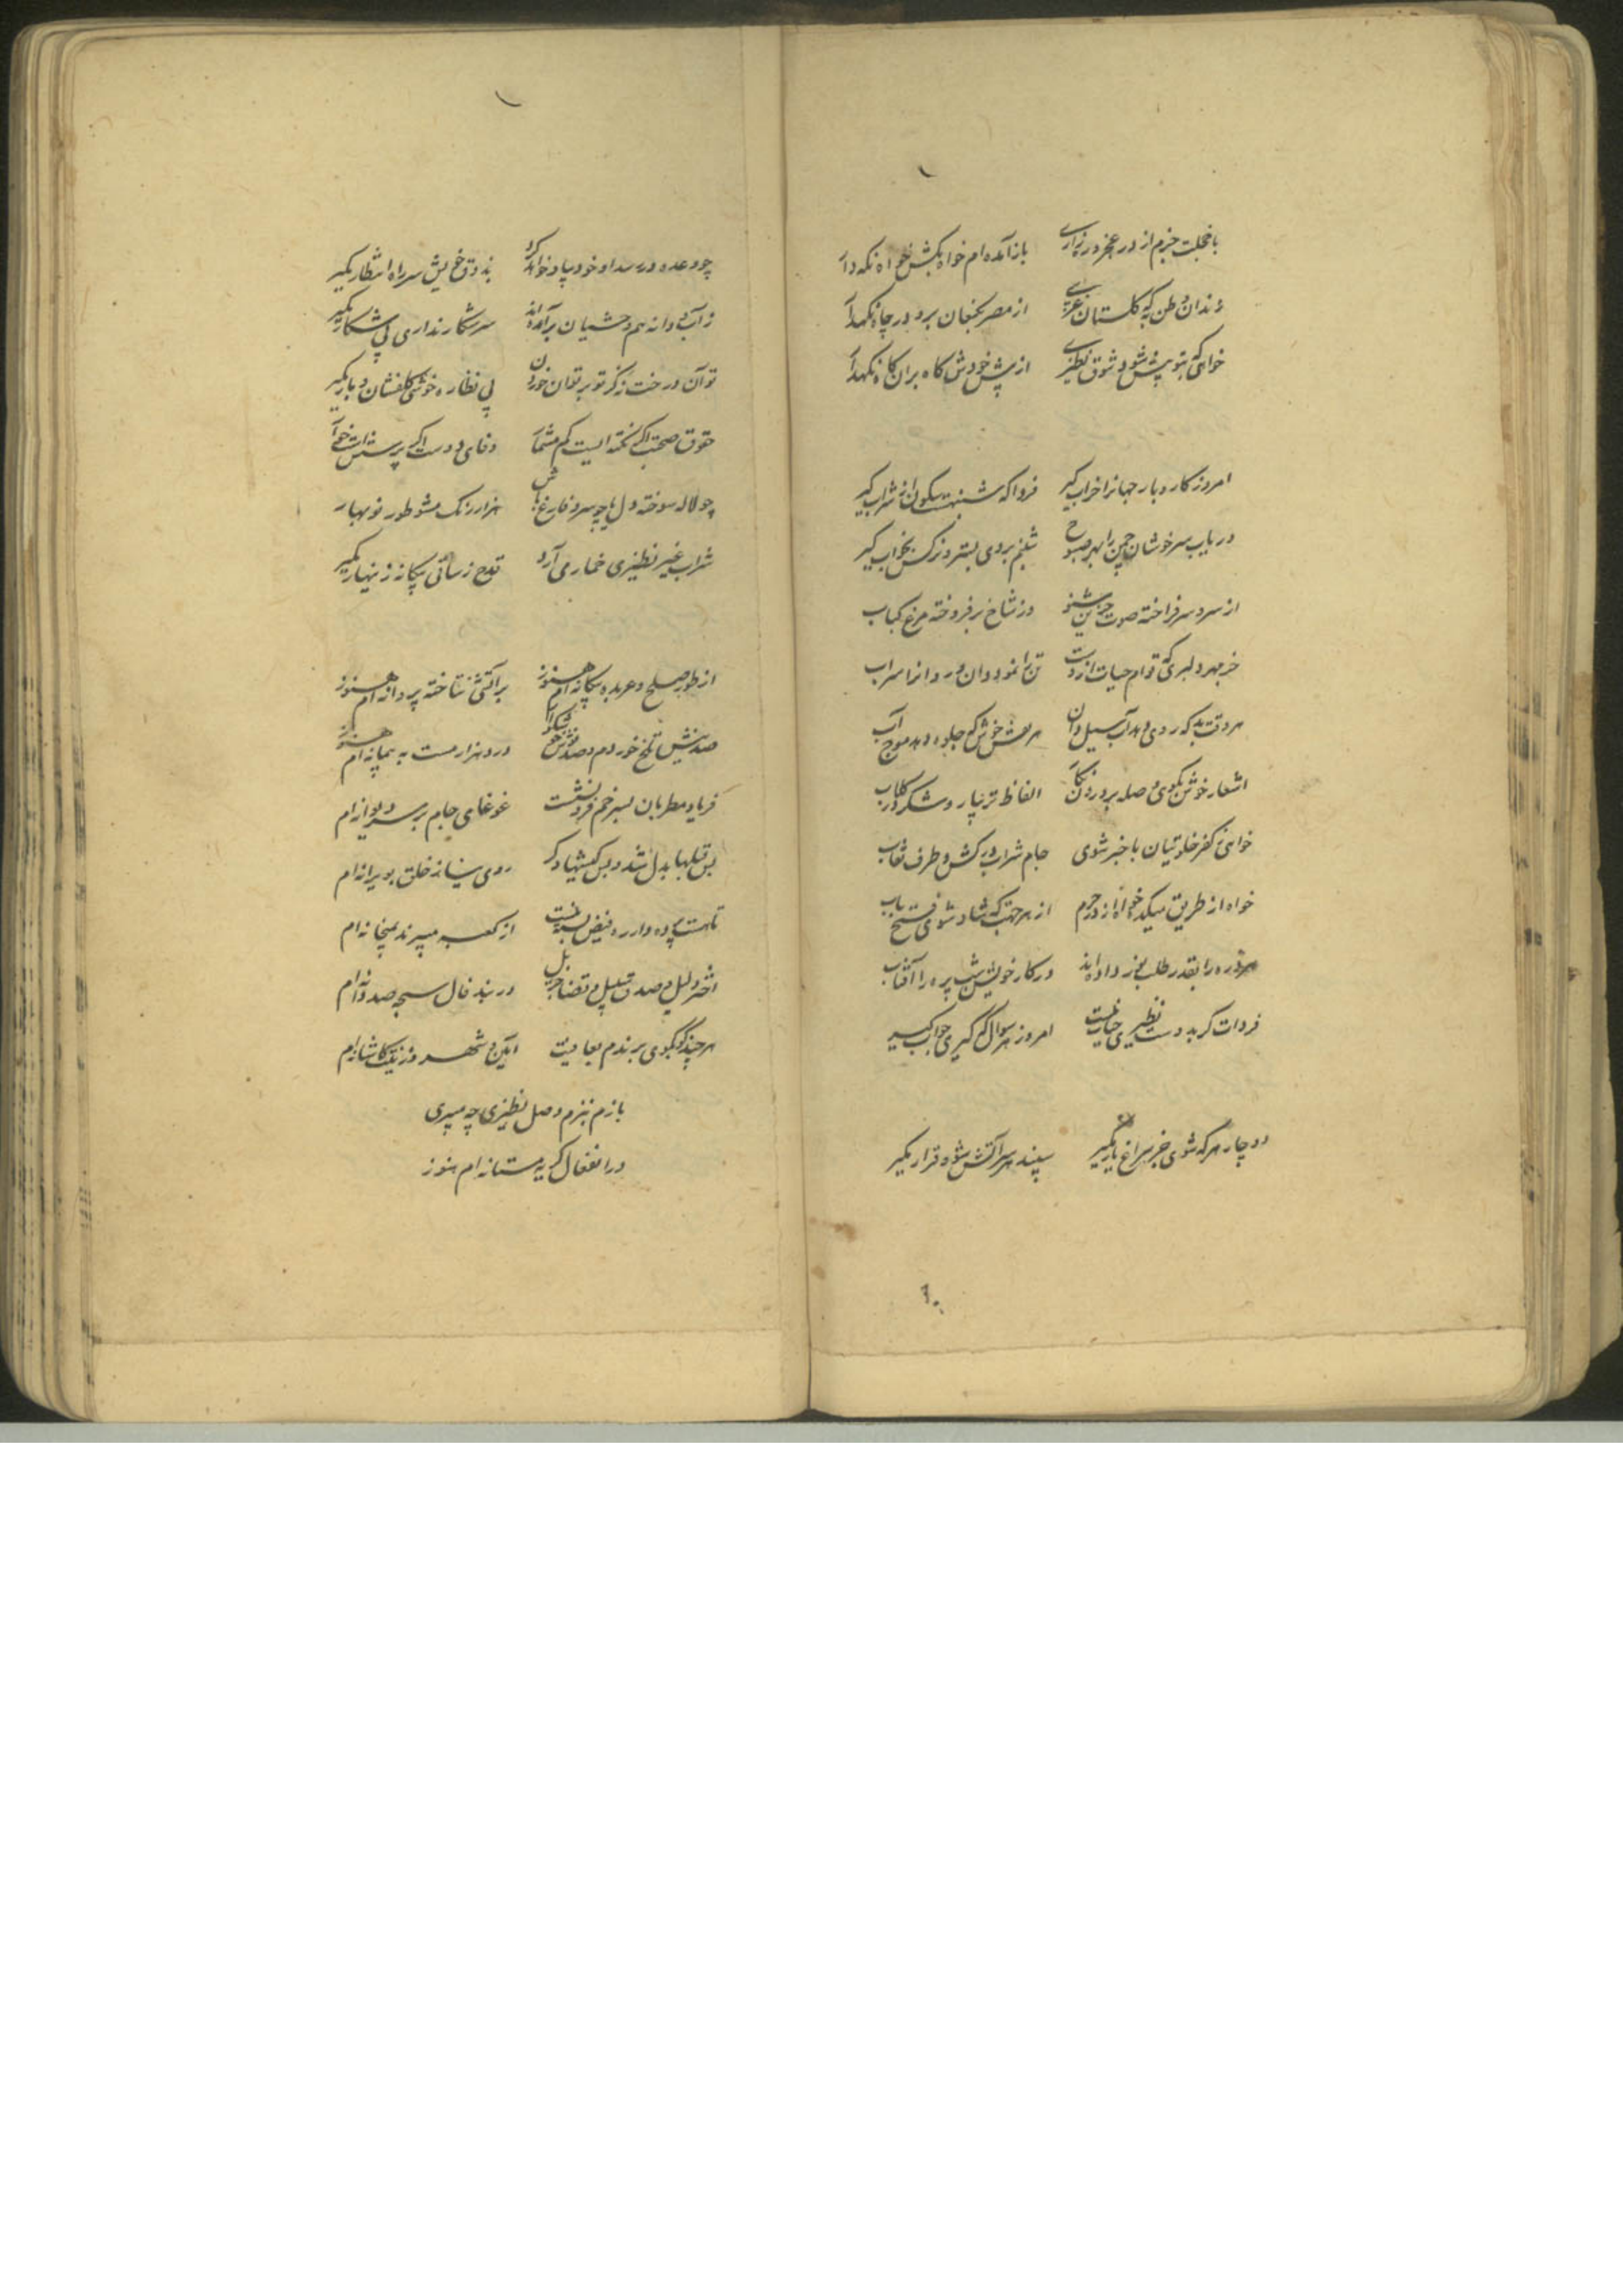 با خجلت جرم از در عجز در زاری باز آمده‌ام خواه بکش خواه نگه دار
زندان وطن به که گلستان غریبی از مصر بکنعان برو در چاه نگهدار
خواهی که بتو بیش شود شوق نظیری از پیش خودش گاه بران گاه نگهدار
امروز کار و بار جهانرا خراب گیر فردا که شنبهست سکون از شراب گیر
دریاب سرخوشان چمن را بهر صبوح شبنم بروی بستر و نرگس بخواب گیر
از سرو سرفراخته صوت حزین شنو وز شاخ برفروخته مرغ کباب
جز مهر دلبری که قوام حیات ازوست تن را نمود دان و روانرا سراب
هر وقت بد که روی دهد آب سیل دان هر نقش خوش که جلوه دهد موج آب
اشعار خوش بگوی و صله بر در نگار الفاظ تر بیار و شکر در گلاب
خواهی ز کفر خلوتیان باخبر شوی جام شراب درکش و طرف نقاب
خواه از طریق میکده خواه از در حرم از هر جهت که شاد شوی فتح باب
هر ذره را بقدر طلب نور داده‌اند در کار خویش شب‌پره را آفتاب
فردات گر بدوست نظیری حساب نیست امروز هر سوال که گیری جواب گیر
دوچار هر که شوی جز سراغ یار مگیر سپند هر سر آتش شو و قرار مگیر
چو وعده در رسد او خود بیاد خواهد کرد بذوق خویش سر راه انتظار مگیر
ز آب و دانه هم وحشیان برآمده‌اند سر شکار نداری پی شکار مگیر
تو آن درخت نه کز تو بر توان خوردن پی نظاره خوشی گلفشان و بار مگیر
حقوق صحبت اگر نکته ایست کم مشمار وفای دوست اگر پرسش است خوار
چو لاله سوخته دل یا چو سرو فارغ باش هزار رنگ مشو طور نوبهار
شراب غیر نظیری خمار می آرد قدح ز ساقی بیگانه زینهار مگیر
از طور صلح و عربده بیگانه‌ام هنوز بر آتشی نتاخته پروانه‌ام هنوز
صد نیش تلخ خوردم و صد نوش خوشگوار درد هزار مست به پیمانه‌ام هنوز
فریاد مطربان بسر خم فرو نشست غوغای جام بر سر دیوانه‌ام
بس قبلها بدل شد و بس کیشها دگر روی نیاز خلق بویرانه‌ام
تا هست پرده دار ره فیض بسته نیست از کعبه میبرند بمیخانه‌ام
اختر دلیل و صدق قبیل و قضا جزیل در بند فال سبحه صد دانه‌ام
هر چند کو بکوی برندم بعافیت آیین شهر و زینت کاشانه‌ام
بازم ببزم وصل نظیری چه میبری
در انفعال گریه مستانه‌ام هنوز